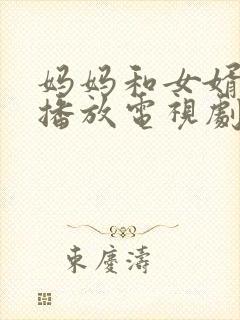 妈妈和女婿
播放電視劇
東慶濤